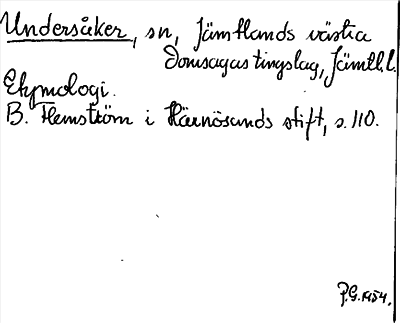 Undersåker, sn, Jämtlands västra
domsagas tingslag, Jämtl.l.
Etymologi.
B. Flemström i Härnösands stift, s. 110.
P.G. 1954.